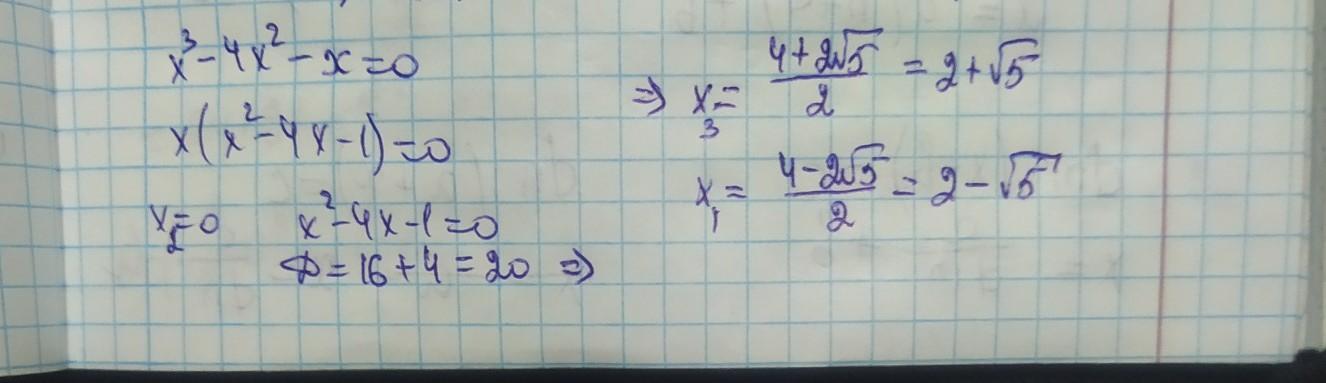 x³ - 4x² - x = 0
x(x² - 4x - 1) = 0
x₂ = 0 x² - 4x - 1 = 0
D = 16 + 4 = 20 ⇒
⇒ x₃ = (4 + 2√5)/2 = 2 + √5
x₁ = (4 - 2√5)/2 = 2 - √5